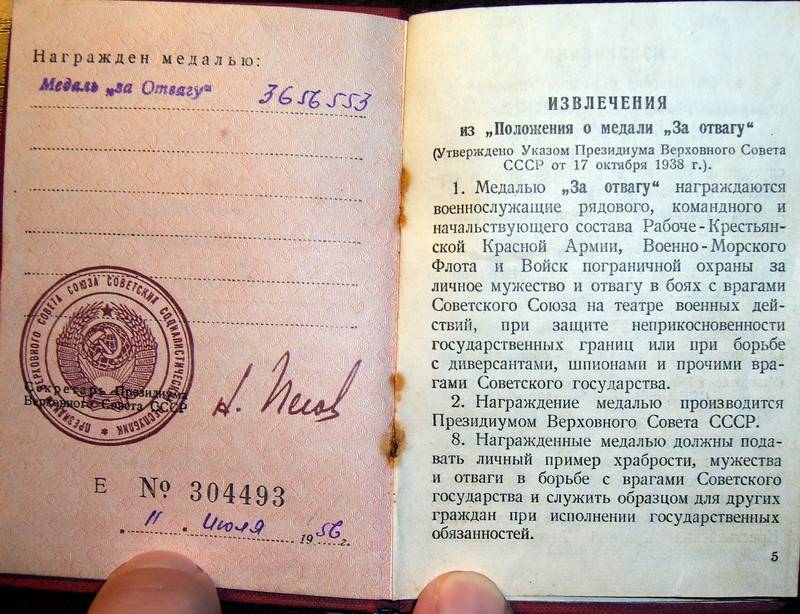 Награжден медалью:
Медаль „за Отвагу“ 3656553
ПРЕЗИДИУМ ВЕРХОВНОГО СОВЕТА СОЮЗА СОВЕТСКИХ СОЦИАЛИСТИЧЕСКИХ РЕСПУБЛИК
Секретарь Президиума
Верховного Совета СССР
Е № 304493
„ 11 “ июля 1956 г.
ИЗВЛЕЧЕНИЯ
из „Положения о медали „За отвагу“
(Утверждено Указом Президиума Верховного Совета
СССР от 17 октября 1938 г.).
1. Медалью „За отвагу“ награждаются
военнослужащие рядового, командного и
начальствующего состава Рабоче-Крестьян-
ской Красной Армии, Военно-Морского
Флота и Войск пограничной охраны за
личное мужество и отвагу в боях с врагами
Советского Союза на театре военных дей-
ствий, при защите неприкосновенности
государственных границ или при борьбе
с диверсантами, шпионами и прочими вра-
гами Советского государства.
2. Награждение медалью производится
Президиумом Верховного Совета СССР.
8. Награжденные медалью должны пода-
вать личный пример храбрости, мужества
и отваги в борьбе с врагами Советского
государства и служить образцом для других
граждан при исполнении государственных
обязанностей.
5